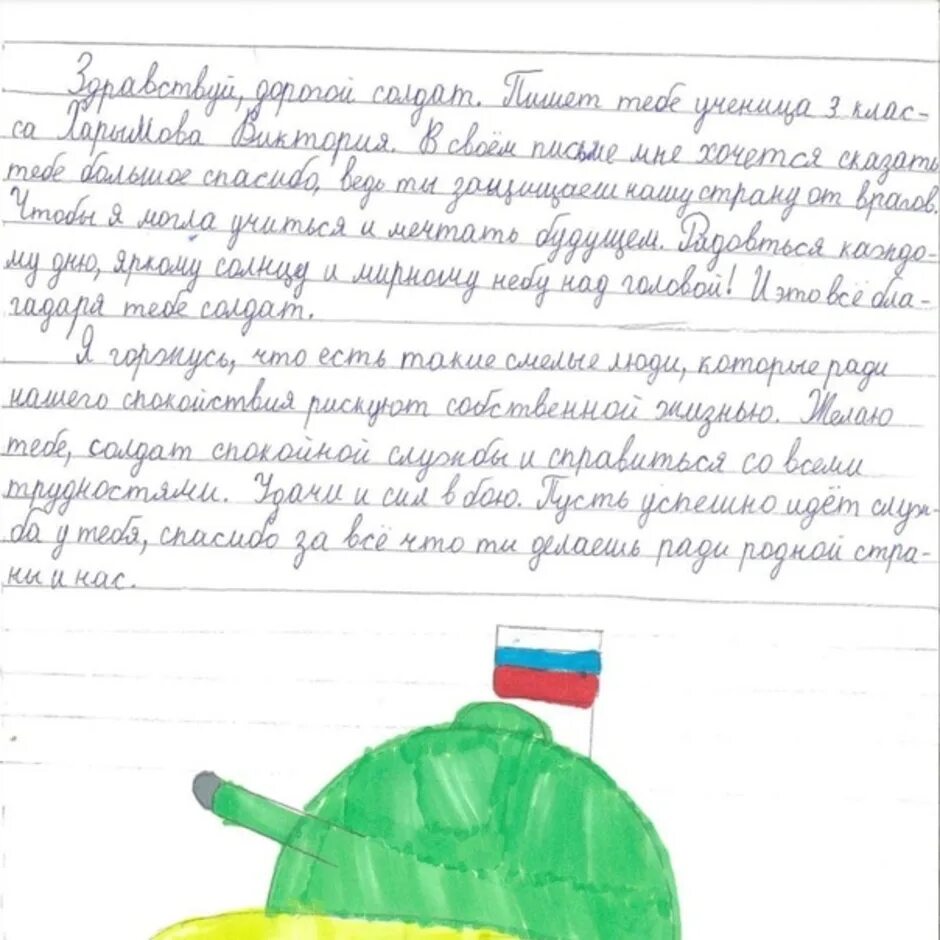 Здравствуй, дорогой солдат. Пишет тебе ученица 3 клас-
са Ларымова Виктория. В своём письме мне хочется сказать
тебе большое спасибо, ведь ты защищаеш нашу страну от врагов.
Чтобы я могла учиться и мечтать будущем. Радовться каждо-
му дню, яркому солнцу и мирному небу над головой! И это всё бла-
гадаря тебе солдат.
Я горжусь, что есть такие смелые люди, которые ради
нашего спокойствия рискуют собственной жизнью. Желаю
тебе, солдат спокойной службы и справиться со всеми
трудностями. Удачи и сил в бою. Пусть успешно идёт служ-
ба у тебя, спасибо за всё что ты делаешь ради родной стра-
ны и нас.